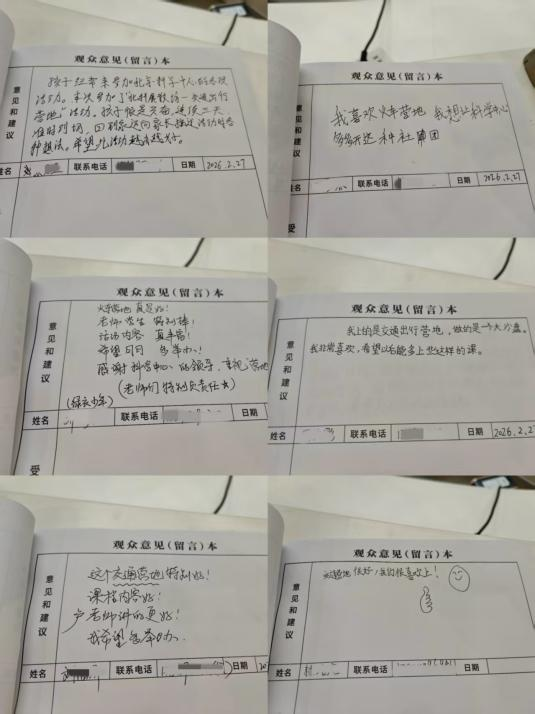 观众意见(留言)本
意见和建议
孩子经常来参加北京科学中心的各项
活动。本次参加了"北科展教坊—交通出行
营地"活动。孩子很是兴奋,连续二天
准时到场,回到家还向家长描述活动的各
种想法。希望此活动越来越好。
姓名
联系电话
日期
2026.2.27
观众意见(留言)本
意见和建议
我喜欢火车营地 我想让科学中心
多多开这种社团
姓名
联系电话
日期
2026.2.27
受
观众意见(留言)本
意见和建议
营地真是好!
老师 学生 特别棒!
活动内容 真丰富!
希望 多举办!
感谢 科学中心 的领导,重视 营地
(老师们特别负责任)
(绿衣少年)
姓名
联系电话
日期
受
观众意见(留言)本
意见和建议
我上的是交通出行营地,做的是一个大沙盘。
我非常喜欢,希望以后能多上些这样的课。
姓名
联系电话
日期
2026.2.27
观众意见(留言)本
意见和建议
这个交通营地特别好!
课程内容好!
卢老师讲的更好!
我希望多举办.
姓名
联系电话
日期
观众意见(留言)本
意见和建议
营地很好,我们很喜欢上!
姓名
联系电话
日期